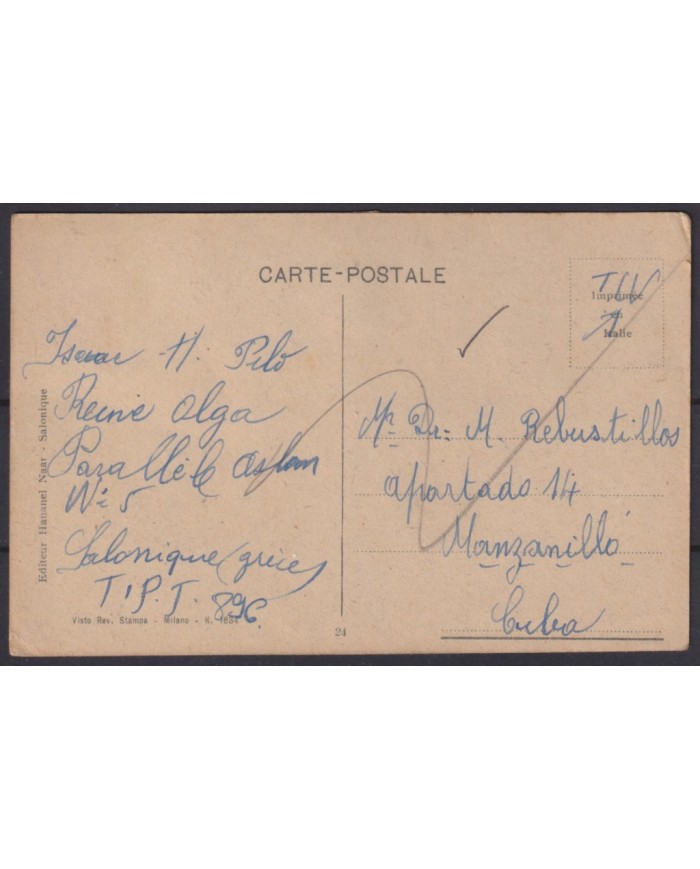 CARTE-POSTALE
Isaac H. Pilo
Reine Olga
Parallèle Aslan
Nº 5
Salonique (grèce)
T.P.J. 896.
Editeur Hananel Naar - Salonique
Visto Rev. Stampa - Milano - K. 1634
24
TCV
Imprimée
en
Italie
Mr. Dr: M. Rebustillos
Apartado 14
Manzanilló
Cuba